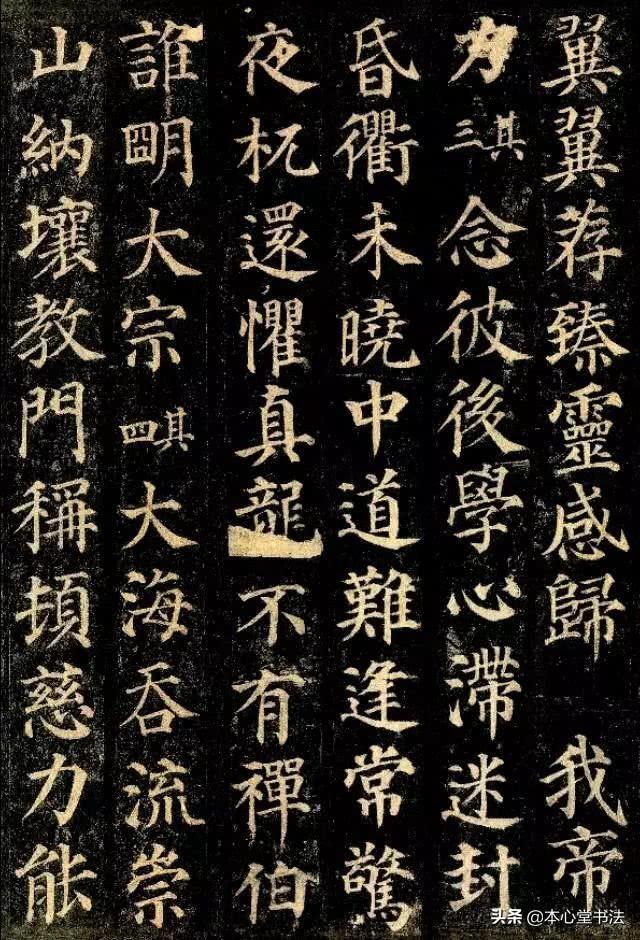 翼翼荐臻靈感歸 我帝
力其三念彼後學心滯迷封
昏衢未曉中道難逢常驚
夜杌還懼真龍不有禪伯
誰明大宗其四大海吞流崇
山納壤教門稱頓慈力能
头条 @本心堂书法